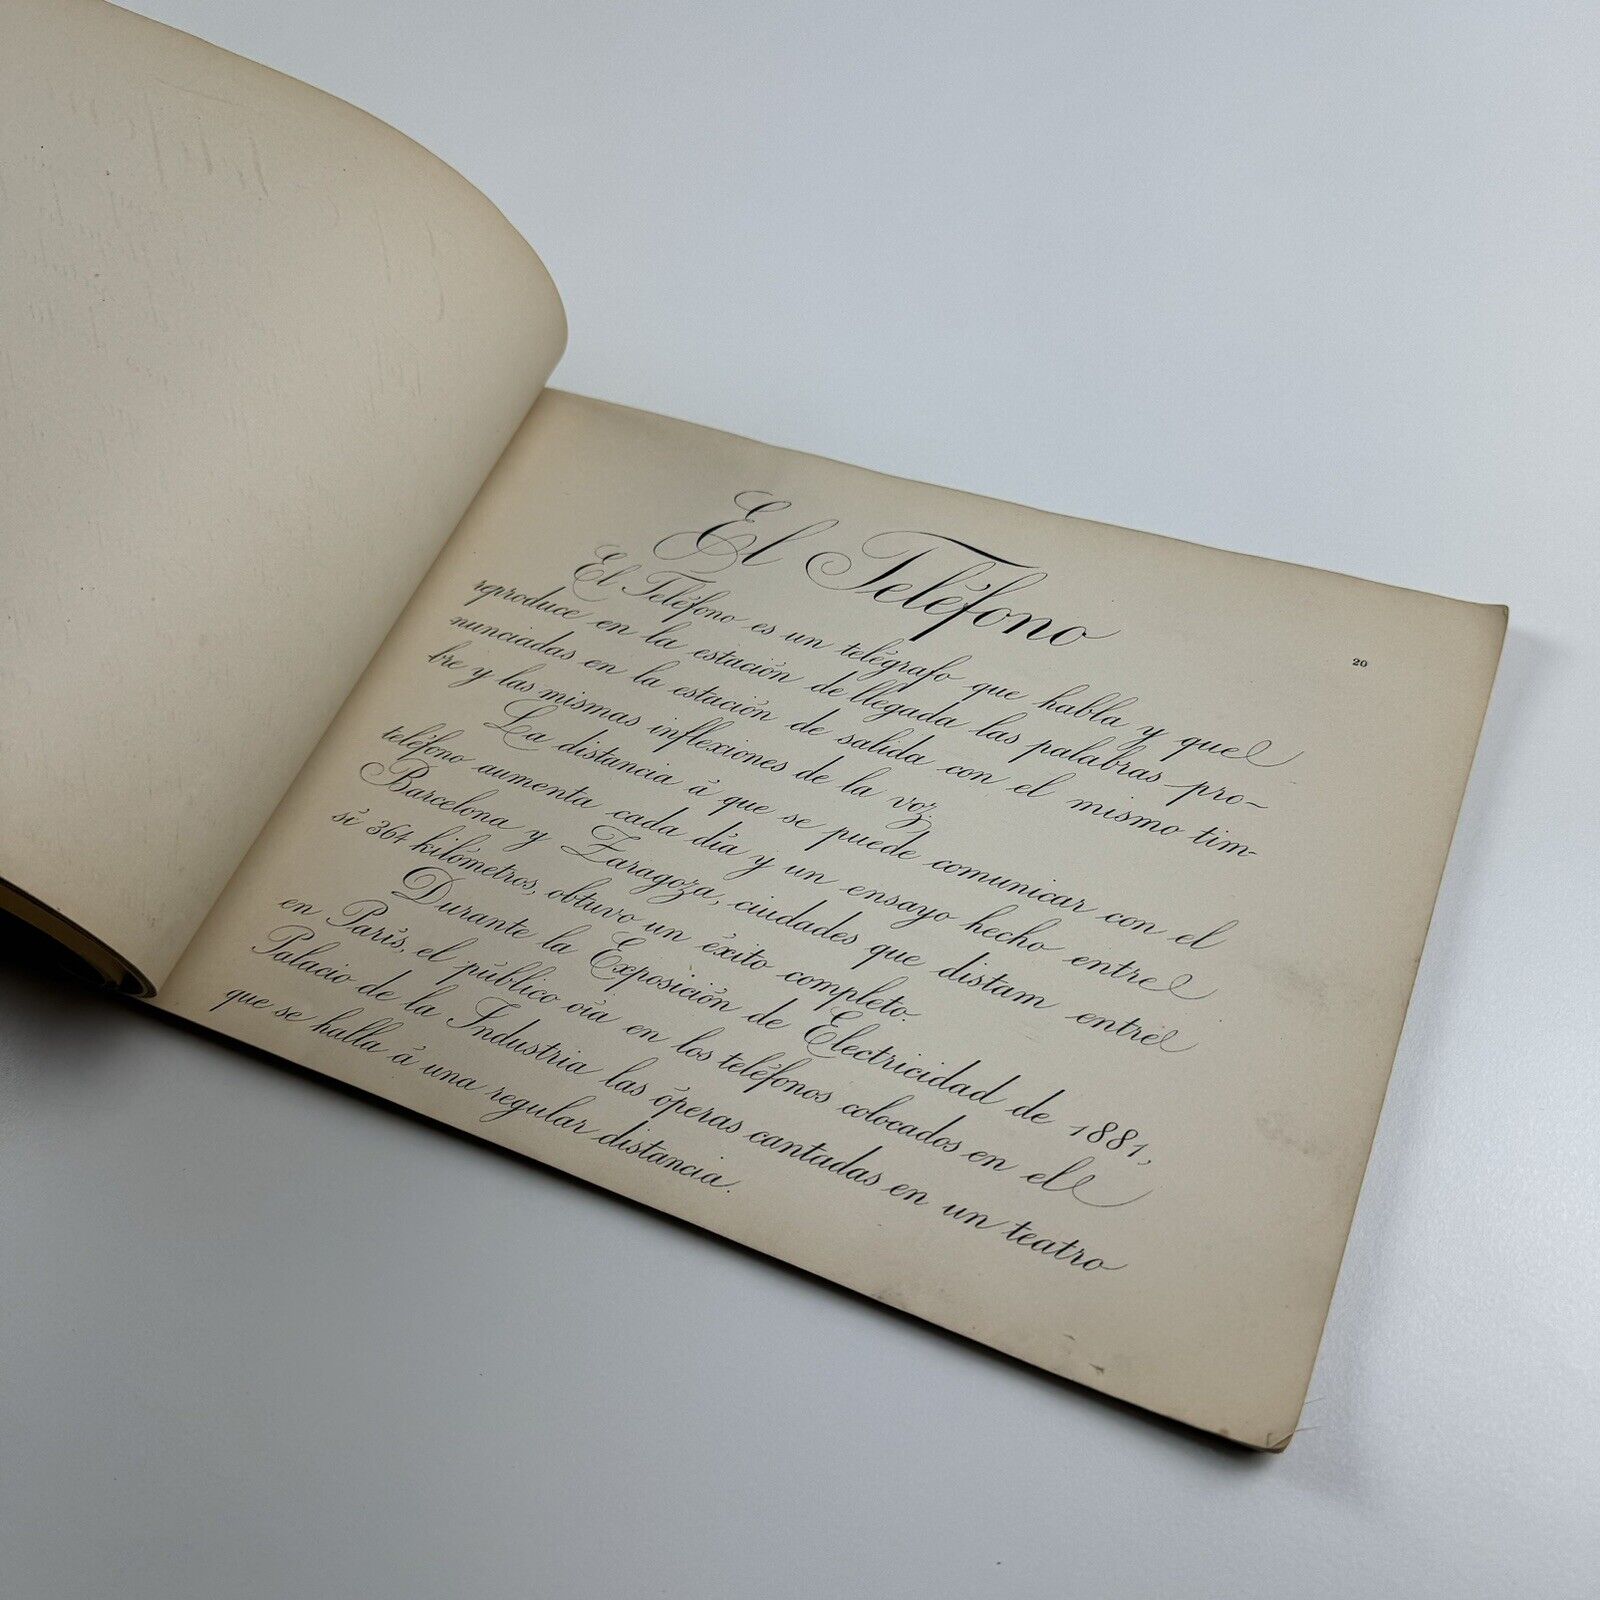 20
El Teléfono
El Teléfono es un telégrafo que habla y que
reproduce en la estación de llegada las palabras pro-
nunciadas en la estación de salida con el mismo tim-
bre y las mismas inflexiones de la voz.
La distancia á que se puede comunicar con el
teléfono aumenta cada día y un ensayo hecho entre
Barcelona y Zaragoza, ciudades que distam entre
sí 364 kilómetros, obtuvo un éxito completo.
Durante la Exposición de Electricidad de 1881,
en París, el público oía en los teléfonos colocados en el
Palacio de la Industria las óperas cantadas en un teatro
que se halla á una regular distancia.